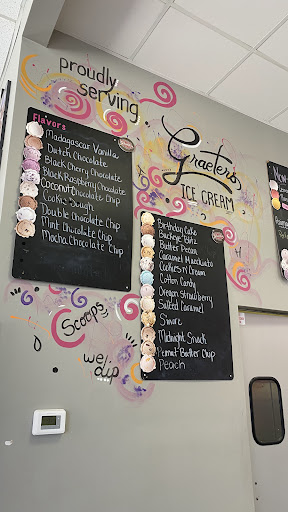 proudly
serving
Graeter's
ICE CREAM
Flavors
Madagascar Vanilla
Dutch Chocolate
Black Cherry Chocolate
Black Raspberry Chocolate
Coconut Chocolate Chip
Cookie Dough
Double Chocolate Chip
Mint Chocolate Chip
Mocha Chocolate Chip
Birthday Cake
Buckeye Blitz
Butter Pecan
Caramel Macchiato
Cookies n' Cream
Cotton Candy
Oregon Strawberry
Salted Caramel
S'more
Midnight Snack
Peanut Butter Chip
Peach
Scoops
we dip